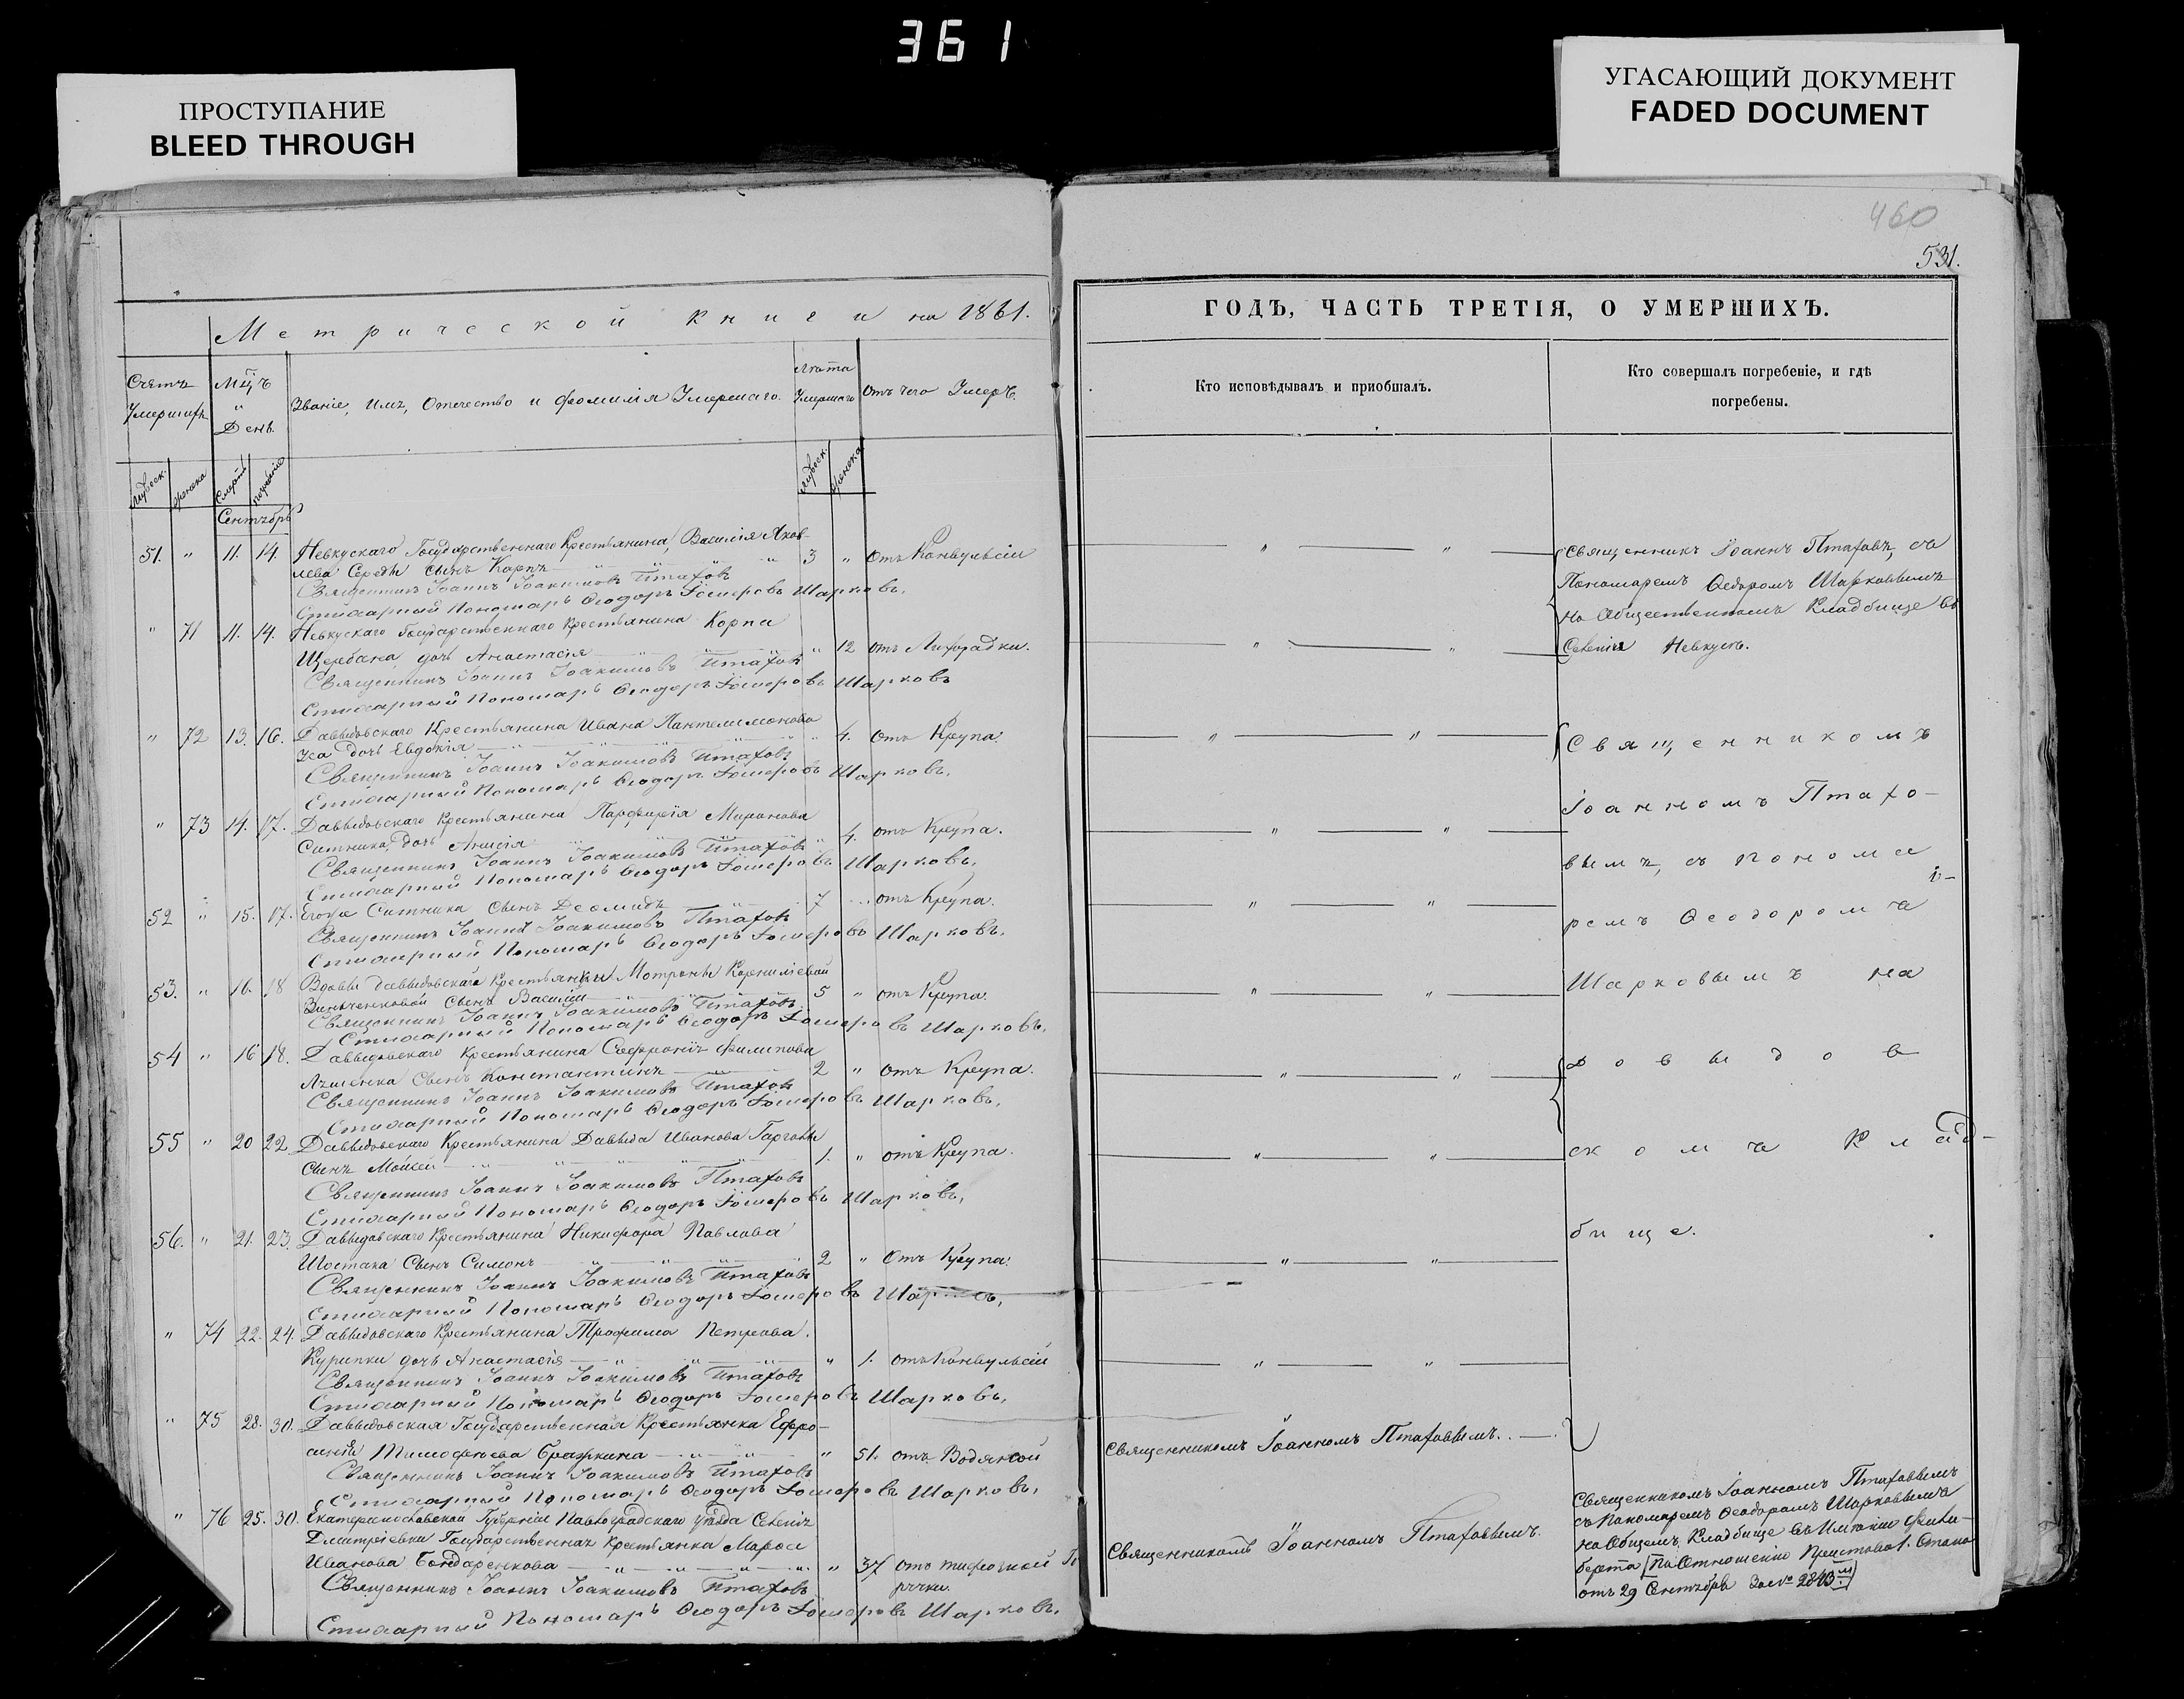 361
ПРОСТУПАНИЕ
BLEED THROUGH
УГАСАЮЩИЙ ДОКУМЕНТ
FADED DOCUMENT
460
531.
Метрической книги на 1861.
ГОДЪ, ЧАСТЬ ТРЕТІЯ, О УМЕРШИХЪ.
Счетъ Умершихъ
Мцъ и День
Званіе, Имя, Отчество и фамилія Умершаго.
Лѣта Умершаго
Отъ чего Умеръ.
Кто исповѣдывалъ и пріобщалъ.
Кто совершалъ погребеніе, и гдѣ погребены.
Мужеск. Женска Смерти Погребенія Мужеск. Женска
Сентябрь
51. " 11. 14. Невкускаго Государственнаго Крестьянина, Василія Яков-
лева Середы Сынъ Карпъ 3 " отъ Конвульсіи
Священникъ Іоаннъ Іоакимовъ Птаховъ
Стихарный Пономарь Ѳеодоръ Шарковъ.
" 71 11. 14. Невкускаго Государственнаго Крестьянина Корпа
Щербана дочь Анастасія " 12 отъ Лихорадки.
Священникъ Іоаннъ Іоакимовъ Птаховъ
Стихарный Пономарь Ѳеодоръ Шарковъ
" 72 13. 16. Давыдовскаго Крестьянина Ивана Пантелимонова
Уса дочь Евдокія " 4. отъ Крупа.
Священникъ Іоаннъ Іоакимовъ Птаховъ
Стихарный Пономарь Ѳеодоръ Шарковъ.
" 73 14. 17. Давыдовскаго Крестьянина Парфирія Миронова
Ситника, дочь Анисія " 4. отъ Крупа.
Священникъ Іоаннъ Іоакимовъ Птаховъ
Стихарный Пономарь Ѳеодоръ Шарковъ.
52 " 15. 17. Ситника Сынъ Деомидъ 7 отъ Крупа.
Священникъ Іоаннъ Іоакимовъ Птаховъ
Стихарный Пономарь Ѳеодоръ Шарковъ.
53. " 16. 18 Вдовы Давыдовской Крестьянки Мотроны Корниліевой
Сынъ Василій 5 " отъ Крупа.
Священникъ Іоаннъ Іоакимовъ Птаховъ.
Стихарный Пономарь Ѳеодоръ Шарковъ.
54 " 16 18. Давыдовскаго Крестьянина Софронія Филипова
Сынъ Константинъ 2 " отъ Крупа.
Священникъ Іоаннъ Іоакимовъ Птаховъ
Стихарный Пономарь Ѳеодоръ Шарковъ.
55 " 20 22 Давыдовскаго Крестьянина Давыда Иванова
Сынъ Мойсей 1. " отъ Крупа.
Священникъ Іоаннъ Іоакимовъ Птаховъ
Стихарный Пономарь Ѳеодоръ Шарковъ.
56. " 21. 23. Давыдовскаго Крестьянина Никифора Павлова
Шостака Сынъ Симонъ 2 " Отъ Крупа.
Священникъ Іоаннъ Іоакимовъ Птаховъ
Стихарный Пономарь Ѳеодоръ
" 74 22. 24. Давыдовскаго Крестьянина Трофима Петрова.
Курипки дочь Анастасія " 1. отъ Конвульсій
Священникъ Іоаннъ Іоакимовъ Птаховъ
Стихарный Пономарь Ѳеодоръ Шарковъ.
" 75 28. 30. Давыдовская Государственная Крестьянка Ефро-
синія Тимофеева Бражкина " 51. отъ Водяной
Священникъ Іоаннъ Іоакимовъ Птаховъ
Стихарный Пономарь Ѳеодоръ Шарковъ.
" 76 25. 30. Екатеринославской Губерніи Павлоградскаго Уѣзда Селенія
Дмитріевки Государственная Крестьянка
Иванова Бондаренкова " 37 отъ тифозной Го
рячки.
Священникъ Іоаннъ Іоакимовъ Птаховъ
Стихарный Пономарь Ѳеодоръ Шарковъ.
Священникъ Іоаннъ Птаховъ, съ
Пономаремъ Ѳедоромъ Шарковымъ
на Общественномъ Кладбище въ
Селеніи Невкусъ.
Священникомъ
Іоанномъ Птахо-
вымъ, съ понома
ремъ Ѳеодоромъ
Шарковымъ на
Довыдов
скомъ Клад-
бище.
Священникомъ Іоанномъ Птаховымъ.
Священникомъ Іоанномъ Птаховымъ.
Священникомъ Іоанномъ Птаховымъ
съ Пономаремъ Ѳеодоромъ Шарковымъ
на Общемъ Кладбище въ Имѣніи
по Отношенію Пристава 1. Стана
отъ 29 Сентября за № 2843